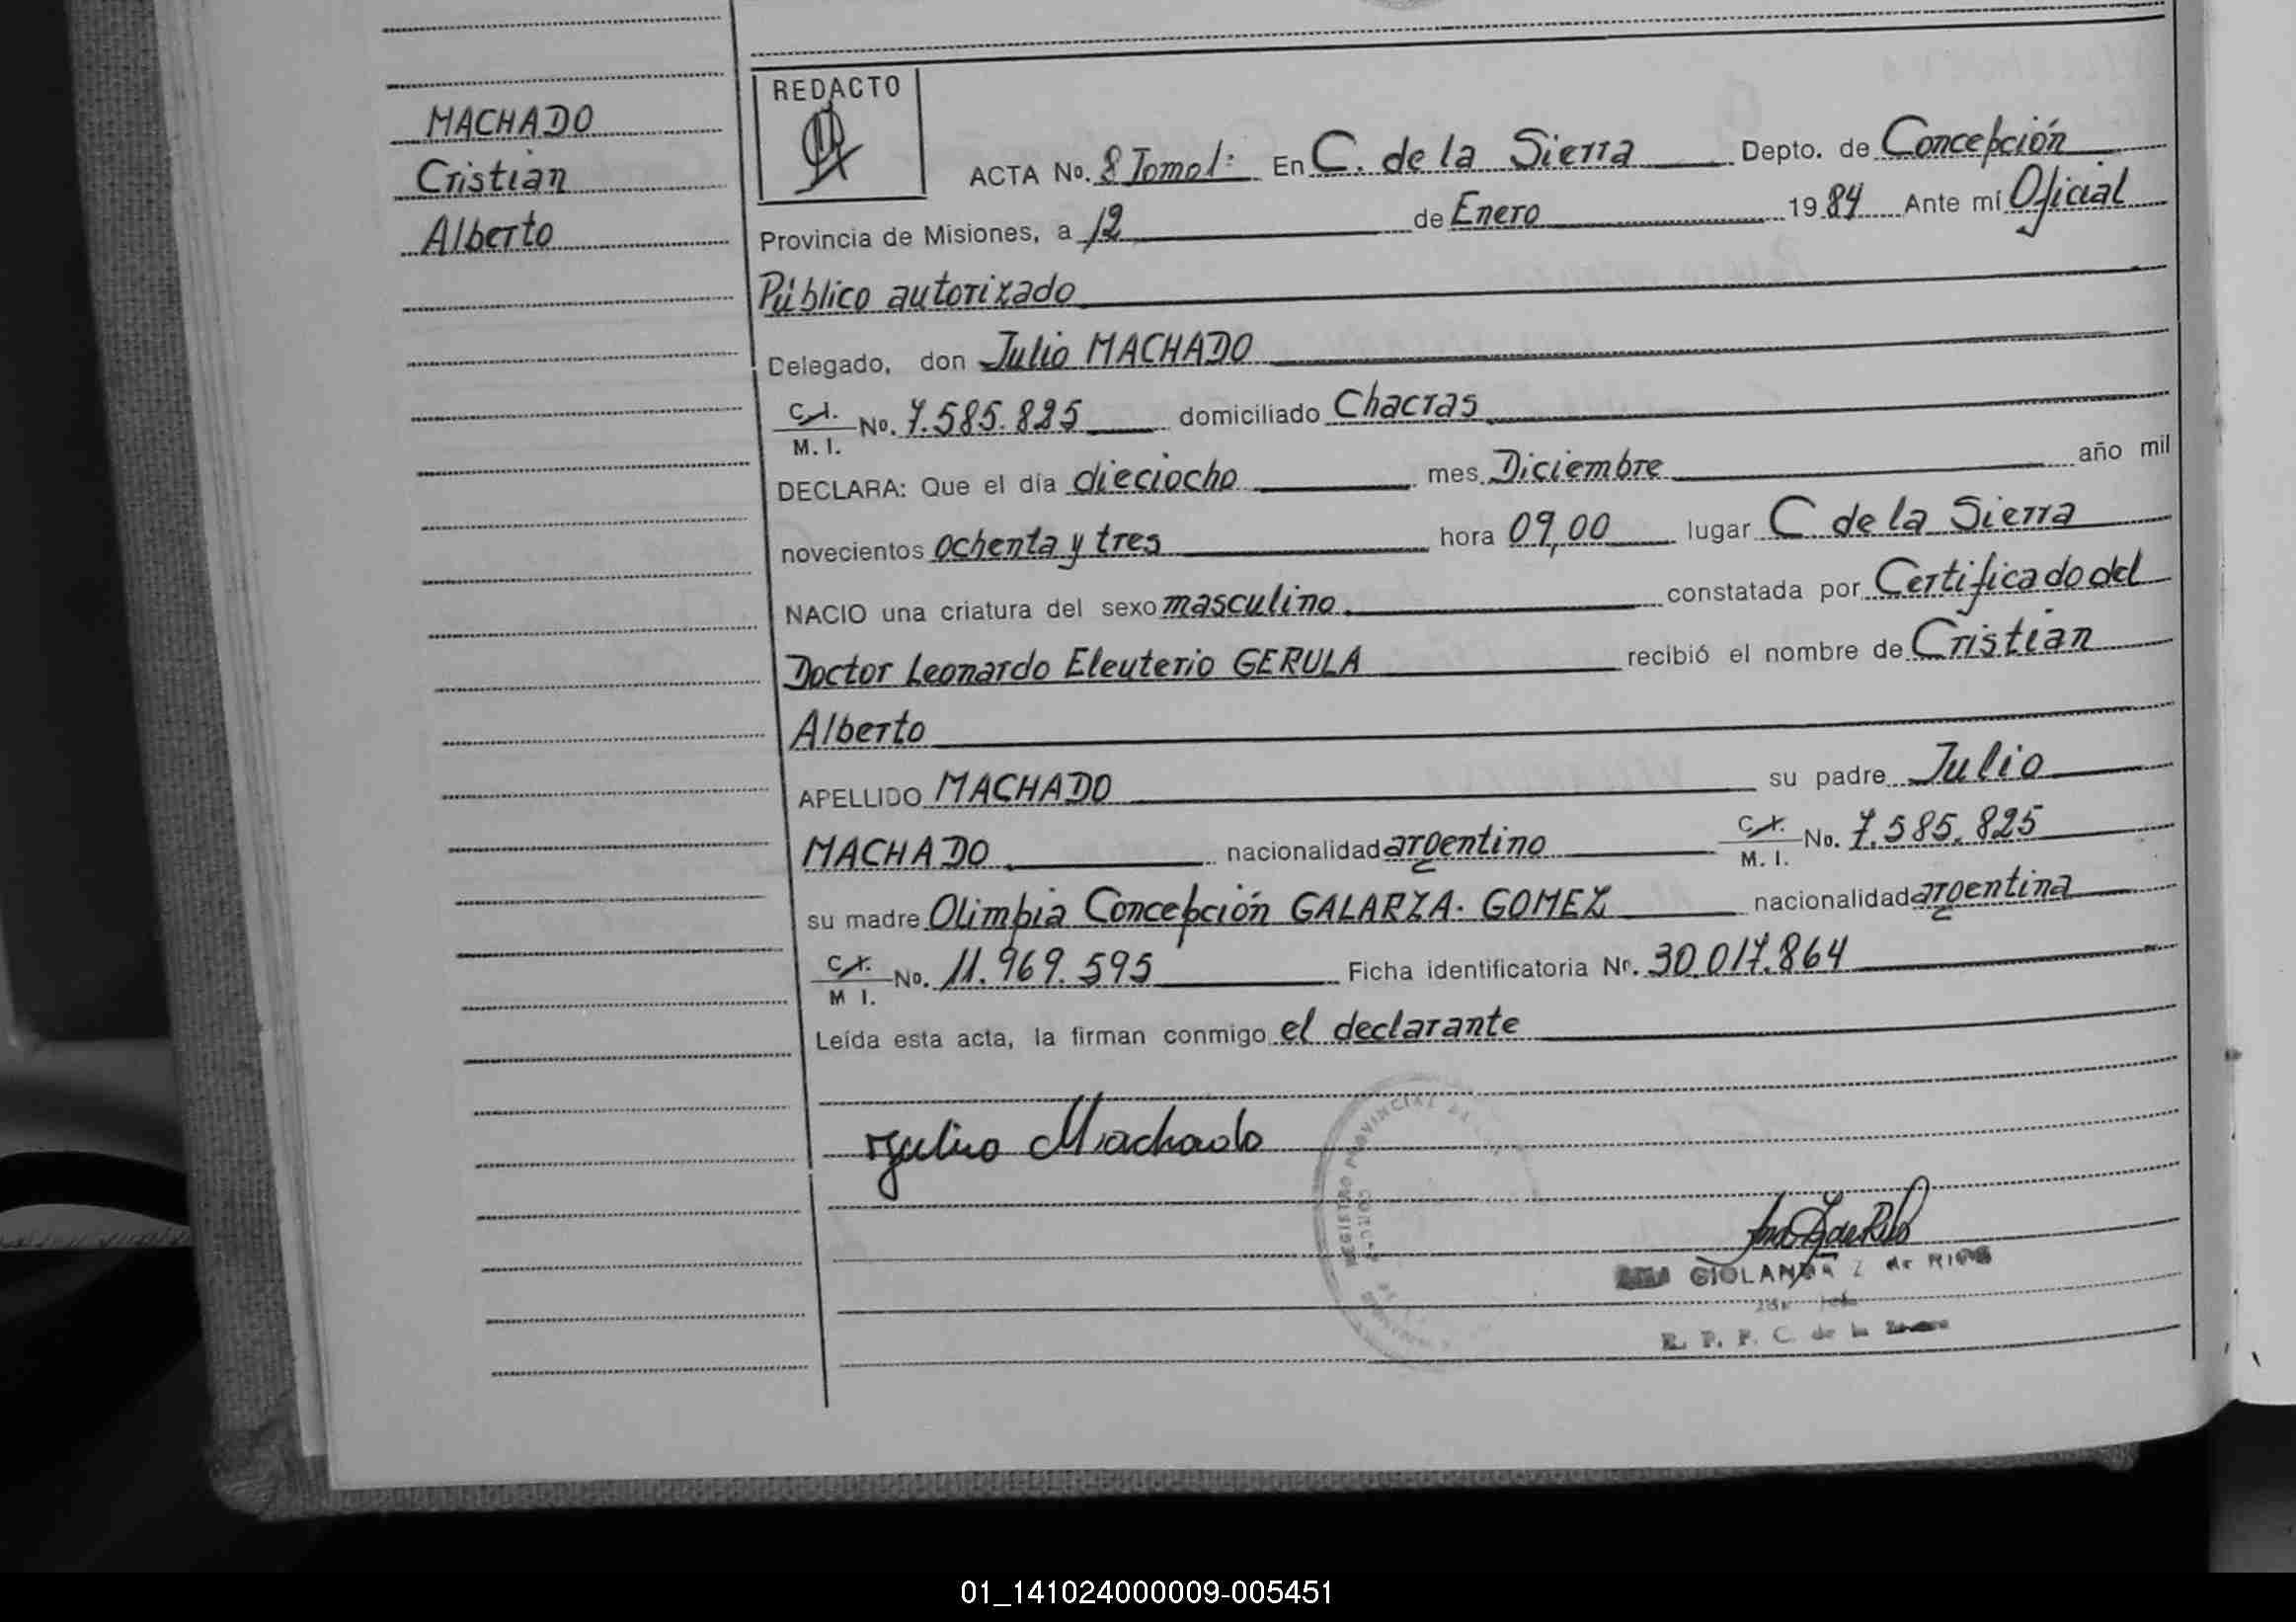 MACHADO
Cristian
Alberto
REDACTO
ACTA No. 8 Tomo I: En C. de la Sierra Depto. de Concepción
Provincia de Misiones, a 12 de Enero 1984 Ante mí Oficial
Público autorizado
Delegado, don Julio MACHADO
C.I.
M. I. No. 7.585.825 domiciliado Chacras
DECLARA: Que el día dieciocho mes Diciembre año mil
novecientos ochenta y tres hora 09,00 lugar C. de la Sierra
NACIO una criatura del sexo masculino. constatada por Certificado del
Doctor Leonardo Eleuterio GERULA recibió el nombre de Cristian
Alberto
APELLIDO MACHADO su padre Julio
MACHADO nacionalidad argentino C.I. M. I. No. 7.585.825
su madre Olimpia Concepción GALARZA. GOMEZ nacionalidad argentina
C.I. M I. No. 11.969.595 Ficha identificatoria Nr. 30.017.864
Leída esta acta, la firman conmigo el declarante
Julio Machado
REGISTRO PROVINCIAL DE
GIOLANDA Z de RIOS
R. P. P. C. de la
01_141024000009-005451